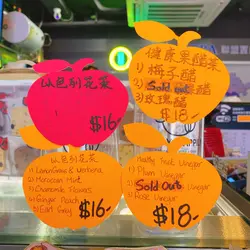 以色列花茶
$16-
健康果醋茶
1) 梅子醋
2) Sold out
3) 玫瑰醋
$18-
以色列花茶
1) Lemongrass & Verbena
2) Moroccan Mint
3) Chamomile Flowers
4) Ginger Patch
5) Earl Grey
$16-
Healthy Fruit Vinegar
1) Plum Vinegar
2) Sold Out Vinegar
3) Rose Vinegar
$18-